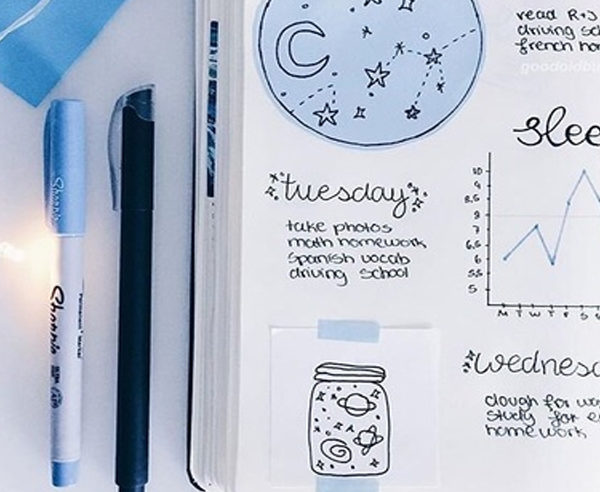 read R+J
driving sc
french ho
slee
10
9
8.5
8
7
6.5
6
5.5
5
M T W T F S S
tuesday
take photos
math homework
spanish vocab
driving school
wednes
dough for wo
study for e
homework
Sharpie
Sharpie
Permanent Marker